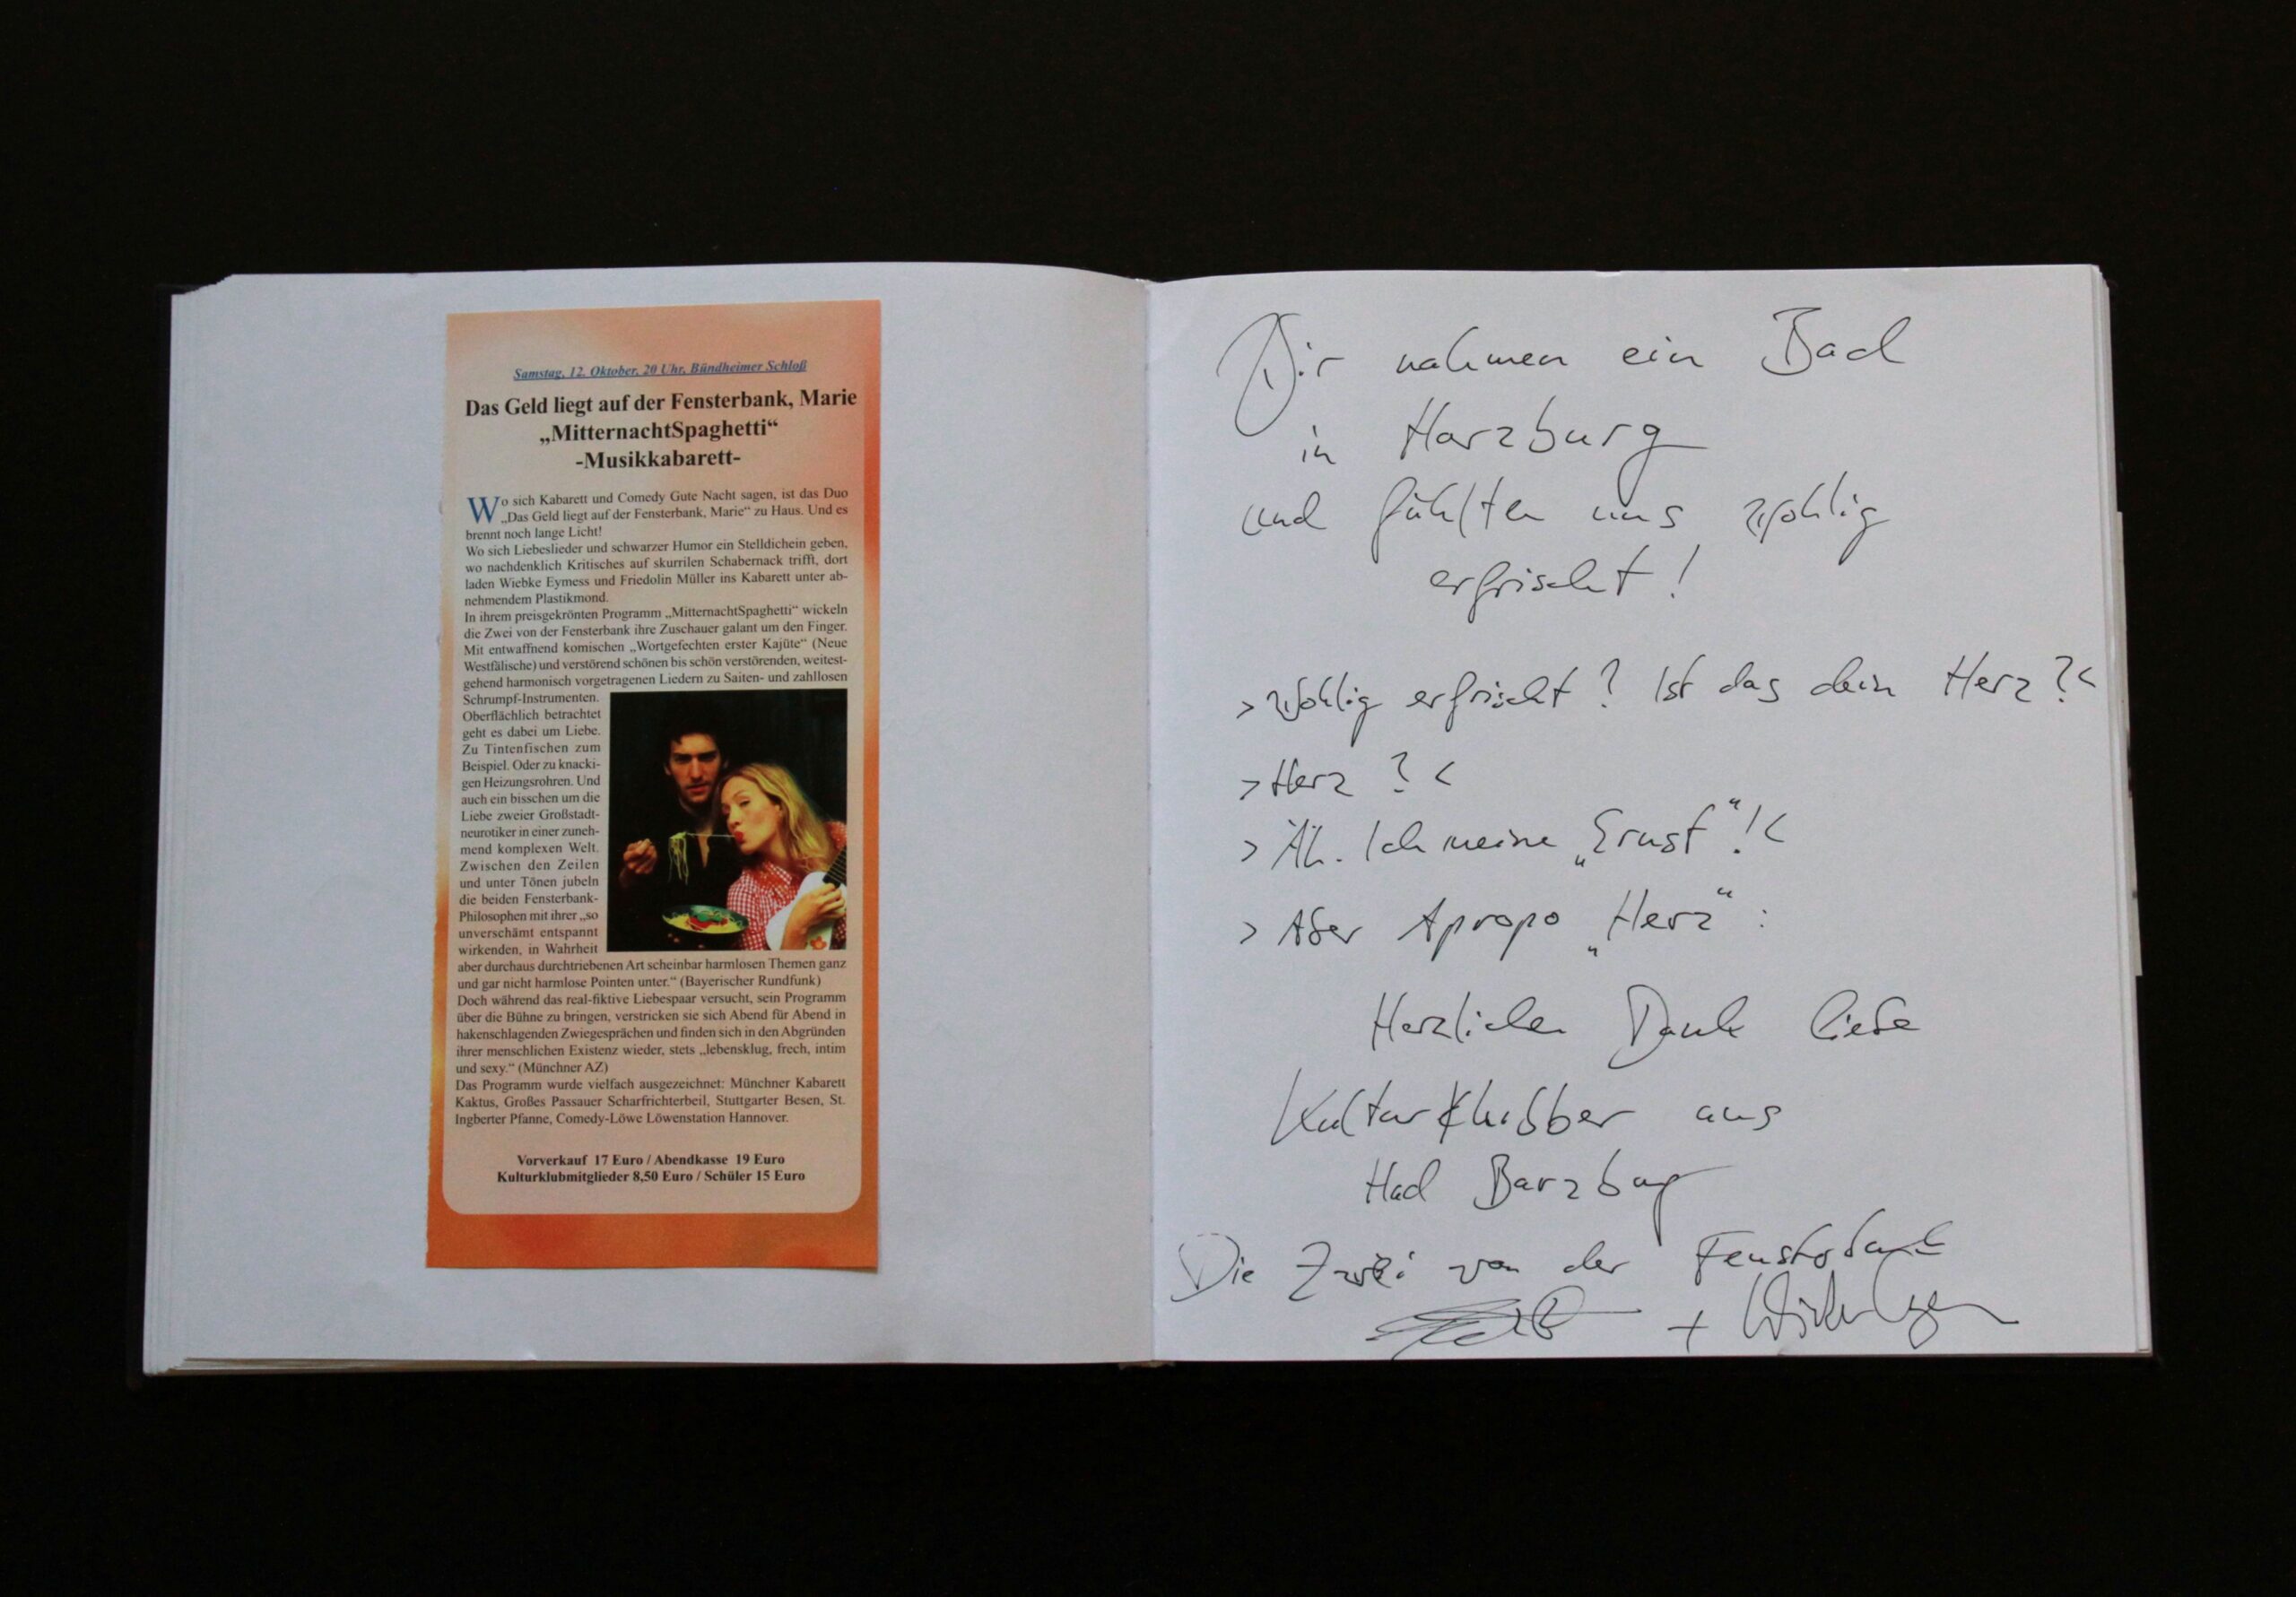 Samstag, 12. Oktober, 20 Uhr, Bündheimer Schloß
Das Geld liegt auf der Fensterbank, Marie
„MitternachtSpaghetti“
-Musikkabarett-
Wo sich Kabarett und Comedy Gute Nacht sagen, ist das Duo
„Das Geld liegt auf der Fensterbank, Marie“ zu Haus. Und es
brennt noch lange Licht!
Wo sich Liebeslieder und schwarzer Humor ein Stelldichein geben,
wo nachdenklich Kritisches auf skurrilen Schabernack trifft, dort
laden Wiebke Eymess und Friedolin Müller ins Kabarett unter ab-
nehmendem Plastikmond.
In ihrem preisgekrönten Programm „MitternachtSpaghetti“ wickeln
die Zwei von der Fensterbank ihre Zuschauer galant um den Finger.
Mit entwaffnend komischen „Wortgefechten erster Kajüte“ (Neue
Westfälische) und verstörend schönen bis schön verstörenden, weitest-
gehend harmonisch vorgetragenen Liedern zu Saiten- und zahllosen
Schrumpf-Instrumenten.
Oberflächlich betrachtet
geht es dabei um Liebe.
Zu Tintenfischen zum
Beispiel. Oder zu knacki-
gen Heizungsrohren. Und
auch ein bisschen um die
Liebe zweier Großstadt-
neurotiker in einer zuneh-
mend komplexen Welt.
Zwischen den Zeilen
und unter Tönen jubeln
die beiden Fensterbank-
Philosophen mit ihrer „so
unverschämt entspannt
wirkenden, in Wahrheit
aber durchaus durchtriebenen Art scheinbar harmlosen Themen ganz
und gar nicht harmlose Pointen unter.“ (Bayerischer Rundfunk)
Doch während das real-fiktive Liebespaar versucht, sein Programm
über die Bühne zu bringen, verstricken sie sich Abend für Abend in
hakenschlagenden Zwiegesprächen und finden sich in den Abgründen
ihrer menschlichen Existenz wieder, stets „lebensklug, frech, intim
und sexy.“ (Münchner AZ)
Das Programm wurde vielfach ausgezeichnet: Münchner Kabarett
Kaktus, Großes Passauer Scharfrichterbeil, Stuttgarter Besen, St.
Ingberter Pfanne, Comedy-Löwe Löwenstation Hannover.
Vorverkauf 17 Euro / Abendkasse 19 Euro
Kulturklubmitglieder 8,50 Euro / Schüler 15 Euro
Wir nahmen ein Bad
in Harzburg
und fühlten uns wohlig
erfrischt!
>Wohlig erfrischt? Ist das dein Herz?<
>Herz?<
>Äh. Ich meine „Ernst“!<
>Aber Apropo „Herz“:
Herzlichen Dank liebe
Kulturklubber aus
Had Barzburg
Die Zwei von der Fensterbank
+